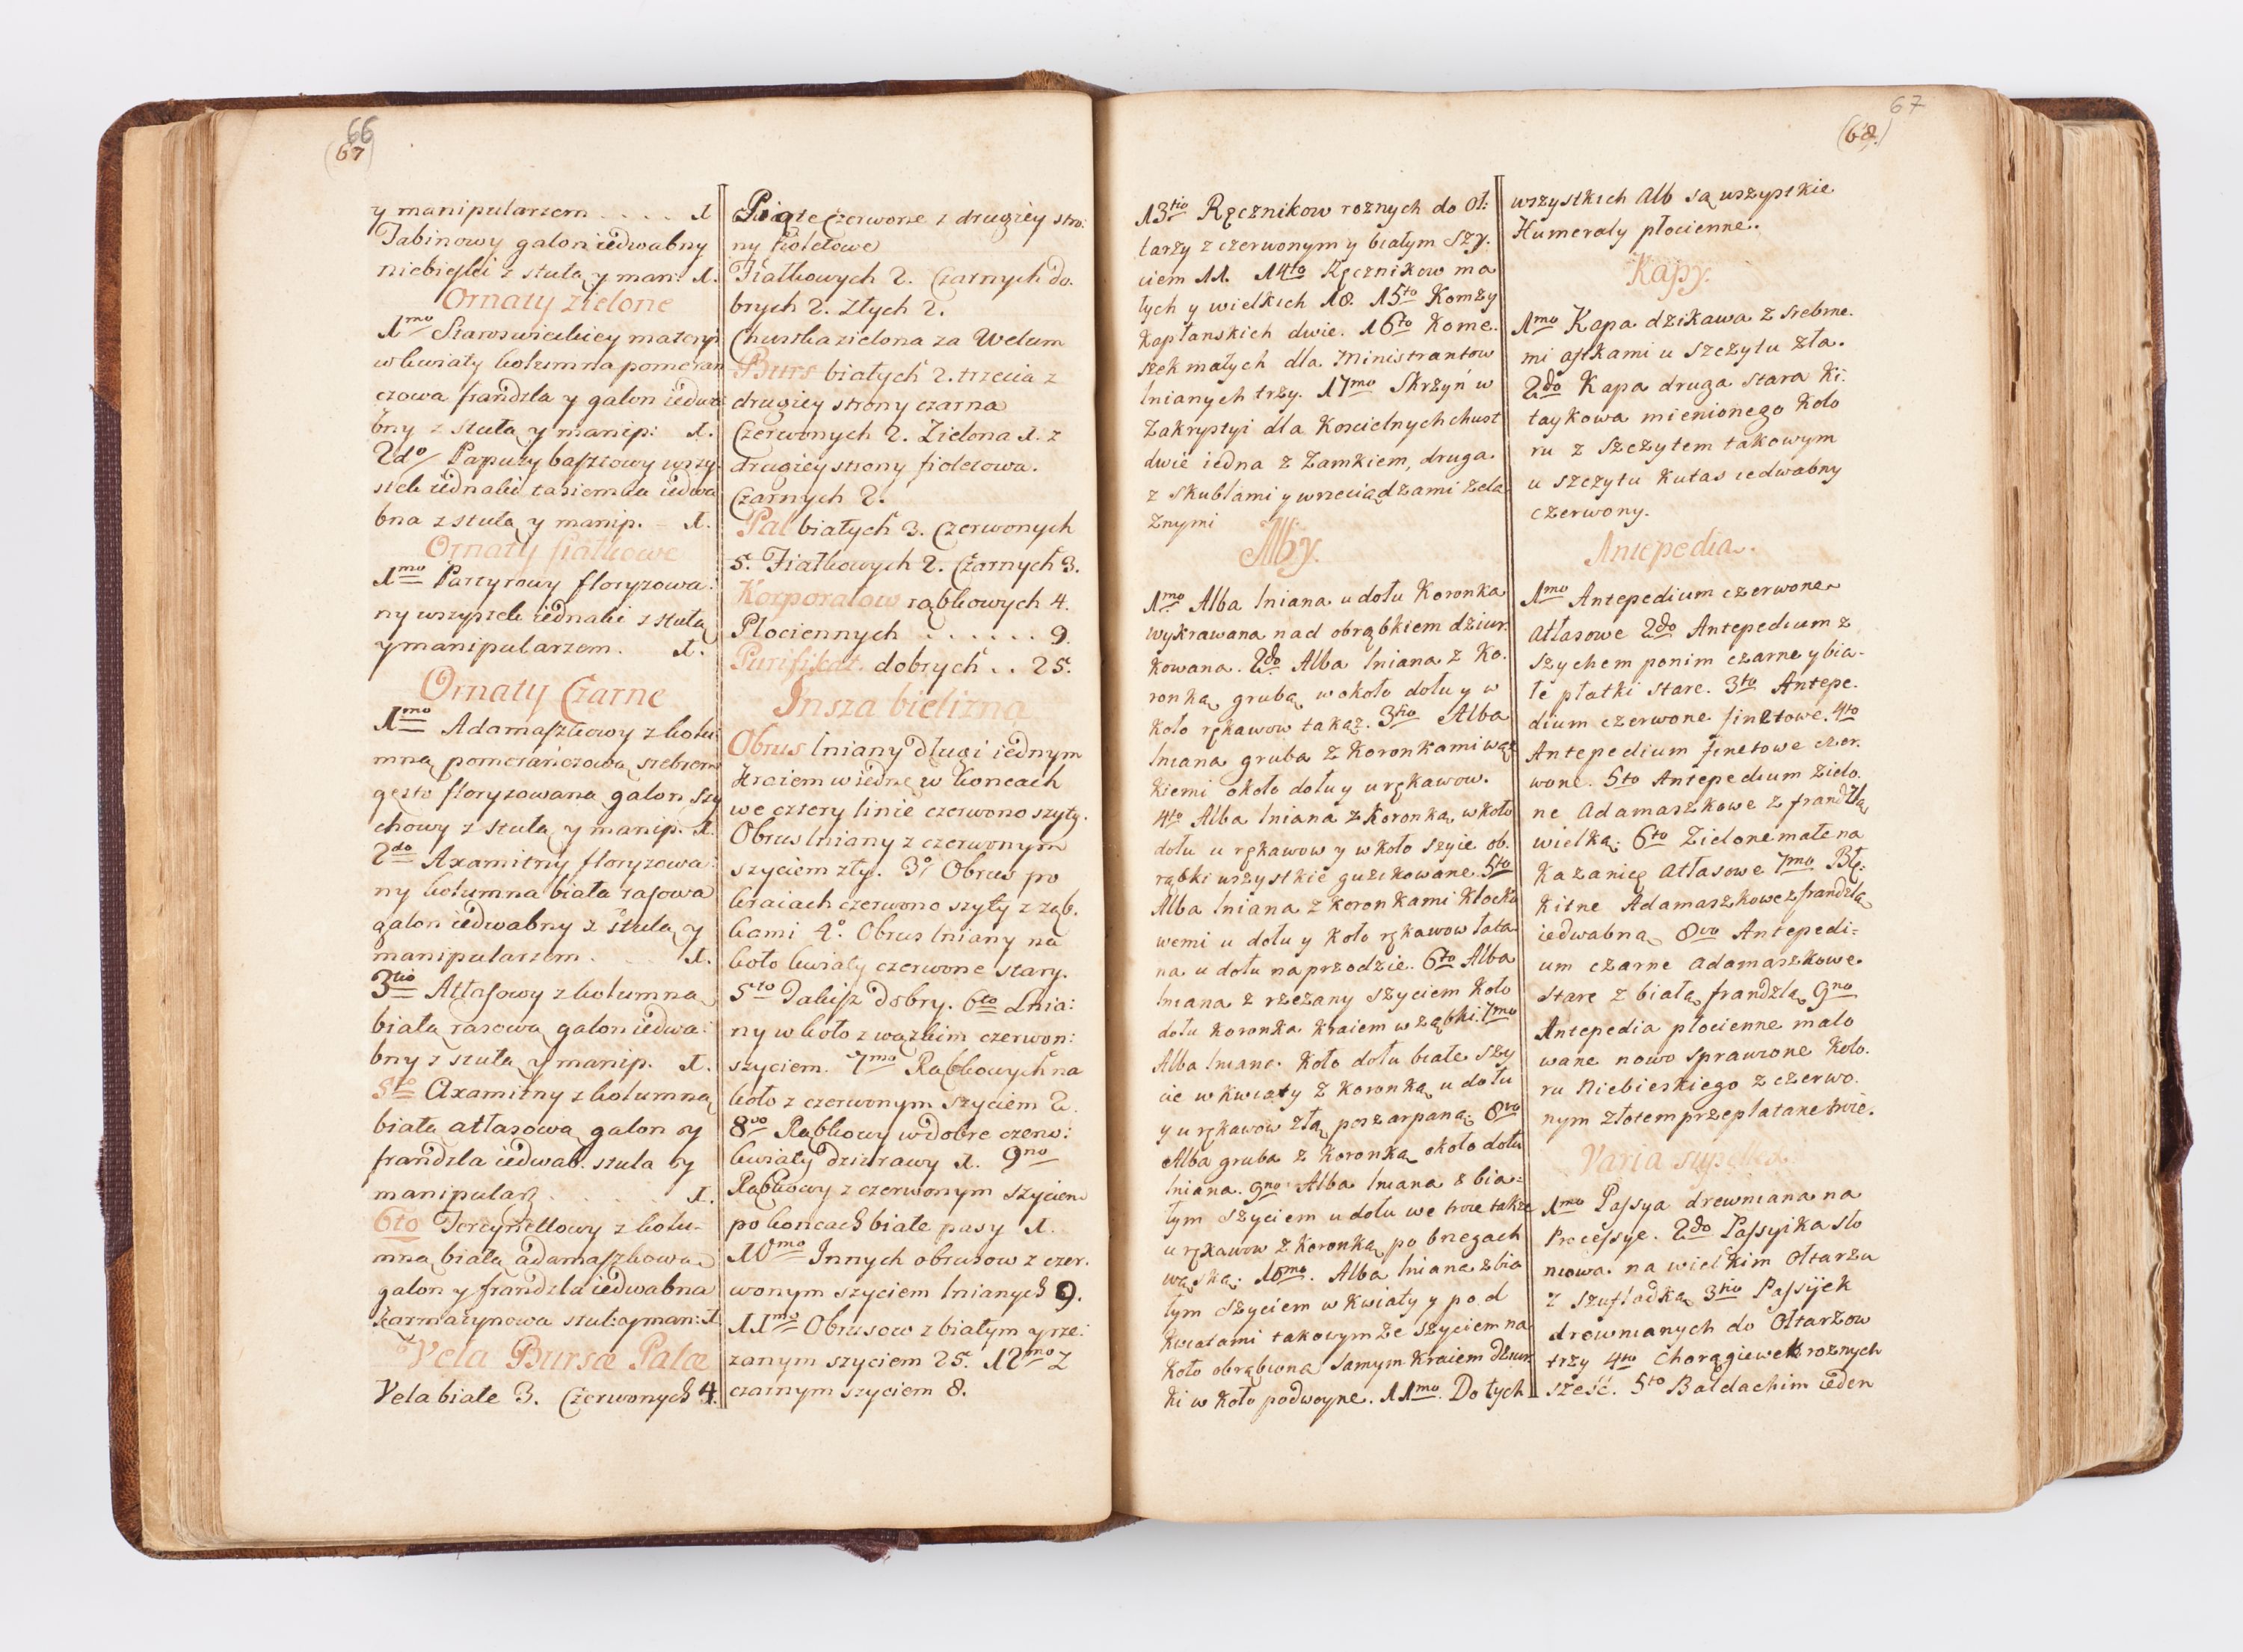 66
(67)
y manipularzem . . . . 1
Tabinowy galon iedwabny
niebieski z stułą y man: 1.
Ornaty zielone
1mo Staroswieckiey materyi
w kwiaty kolumna pomeran
czowa frandzla y galon iedwa
bny z stułą y manip: 1.
2do/ Papuzy basztowy wszy:
stek iednaki tasiemka iedwa
bna z stułą y manip. - 1.
Ornaty fiałkowe
1mo Partyrowy floryzowa:
ny wszystek iednaki z stułą
y manipularzem. 1.
Ornaty Czarne
1mo Adamaszkowy z kolu:
mną pomerańczową srebrem
gęsto floryzowaną galon szy
chowy z stułą y manip. 1.
2do Axamitny floryzowa:
ny kolumna biała rasowa
galon iedwabny z stułą y
manipularzem . . . 1.
3tio Atłasowy z kolumną
białą rasową galon iedwa:
bny z stułą y manip. 1.
5to Axamitny z kolumną
białą atłasową galon y
frandzla iedwab. stuła y
manipularz . . . . . 1.
6to Tercynellowy z kolu-
mną białą adamaszkową
galon y frandzla iedwabna
karmazynowa stuł: y man: 1
Vela Bursæ Palæ
Vela białe 3. Czerwonych 4.
Piąte Czerwone z drugiey stro:
ny fioletowe
Fiałkowych 2. Czarnych do.
brych 2. Złych 2.
Chustka zielona za Welum
Burs białych 2. trzecia z
drugiey strony czarna
Czerwonych 2. Zielona 1. z
drugiey strony fioletowa.
Czarnych 2.
Pal białych 3. Czerwonych
5. Fiałkowych 2. Czarnych 3.
Korporałow rąbkowych 4.
Płociennych . . . . . . 9.
Purifikat. dobrych . . 25.
Insza bielizna
Obrus lniany długi iednym
kraiem w iednę w koncach
we cztery linie czerwono szyty.
Obrus lniany z czerwonym
szyciem zły. 3o/ Obrus po
kraiach czerwono szyty z ząb.
kami 4o. Obrus lniany na
koło kwiaty czerwone stary.
5to Takisz dobry. 6to Lnia:
ny w koło z wązkim czerwon:
szyciem. 7mo Rąbkowych na
koło z czerwonym szyciem 2.
8vo Rąbkowy w dobre czerw:
kwiaty dziurawy 1. 9no
Rąbkowy z czerwonym szyciem
po koncach białe pasy 1.
10mo Innych obrusow z czer.
wonym szyciem lnianych 9.
11mo Obrusow z białym y rze:
zanym szyciem 25. 12mo Z
czarnym szyciem 8.
67
(68.)
13tio Ręcznikow roznych do Oł:
tarzy z czerwonym y białym szy.
ciem 11. 14to Ręcznikow ma
łych y wielkich 18. 15to Komzy
Kapłanskich dwie. 16to Kome.
szek małych dla Ministrantow
lnianych trzy. 17mo Skrzyń w
Zakrystyi dla Koscielnych chust
dwie iedna z Zamkiem, druga
z skublami y wrzeciądzami zela
znymi
Alby.
1mo Alba lniana u dołu Koronka
wykrawana nad obrąbkiem dziur.
kowana. 2do Alba lniana z Ko.
ronką grubą w około dołu y w
koło rękawow takąz. 3tio Alba
lniana gruba z Koronkami wąz
kiemi około dołu y u rękawow.
4to Alba lniana z Koronką w koło
dołu u rękawow y w koło szyie ob.
rąbki wszystkie guzikowane 5to
Alba lniana z koronkami Klocko
wemi u dołu y koło rękawow łata
na u dołu na przodzie. 6to Alba
lniana z rzezany szyciem koło
dołu koronka kraiem w ząbki. 7mo
Alba lniana. koło dołu białe szy
cie w kwiaty z koronką u dołu
y u rękawow złą poszarpaną. 8vo
Alba gruba z koronką około dołu
lniana. 9no Alba lniana z bia=
łym szyciem u dołu we troie także
u rękawow z koronką po bregach
wąską. 10mo. Alba lniana z bia
łym szyciem w kwiaty y pod
kwiatami takowymże szyciem na
koło obrąbiona samym kraiem dziur
ki w koło podwoyne. 11mo. Do tych
wszystkich Alb są wszystkie
Humerały płocienne.
Kapy.
1mo Kapa dzikawa z srebrne.
mi astkami u szczytu zła.
2do Kapa druga stara ki:
taykowa mienionego kolo
ru z szczytem takowym
u szczytu kutas iedwabny
czerwony.
Antepedia.
1mo Antepedium czerwone
Atłasowe 2do Antepedium z
szychem po nim czarne y bia-
łe płatki stare. 3to Antepe.
dium czerwone finetowe. 4to
Antepedium finetowe czer.
wone. 5to Antepedium Zielo.
ne Adamaszkowe z frandzlą
wielką. 6to Zielone małe na
Kazanicę Atłasowe 7mo Błę:
kitne Adamaszkowe z frandzlą
iedwabną 8vo Antepedi=
um czarne Adamaszkowe
stare z białą frandzlą 9no
Antepedia płocienne malo
wane nowo sprawione kolo.
ru Niebieskiego z czerwo.
nym złotem przeplatane troie.
Varia supellex
1mo Passya drewniana na
Processye. 2do Passyika sło
niowa na wielkim Ołtarzu
z szufladką 3tio Passyjek
drewnianych do Ołtarzow
trzy 4to Chorągiewek roznych
sześć. 5to Baldachim ieden